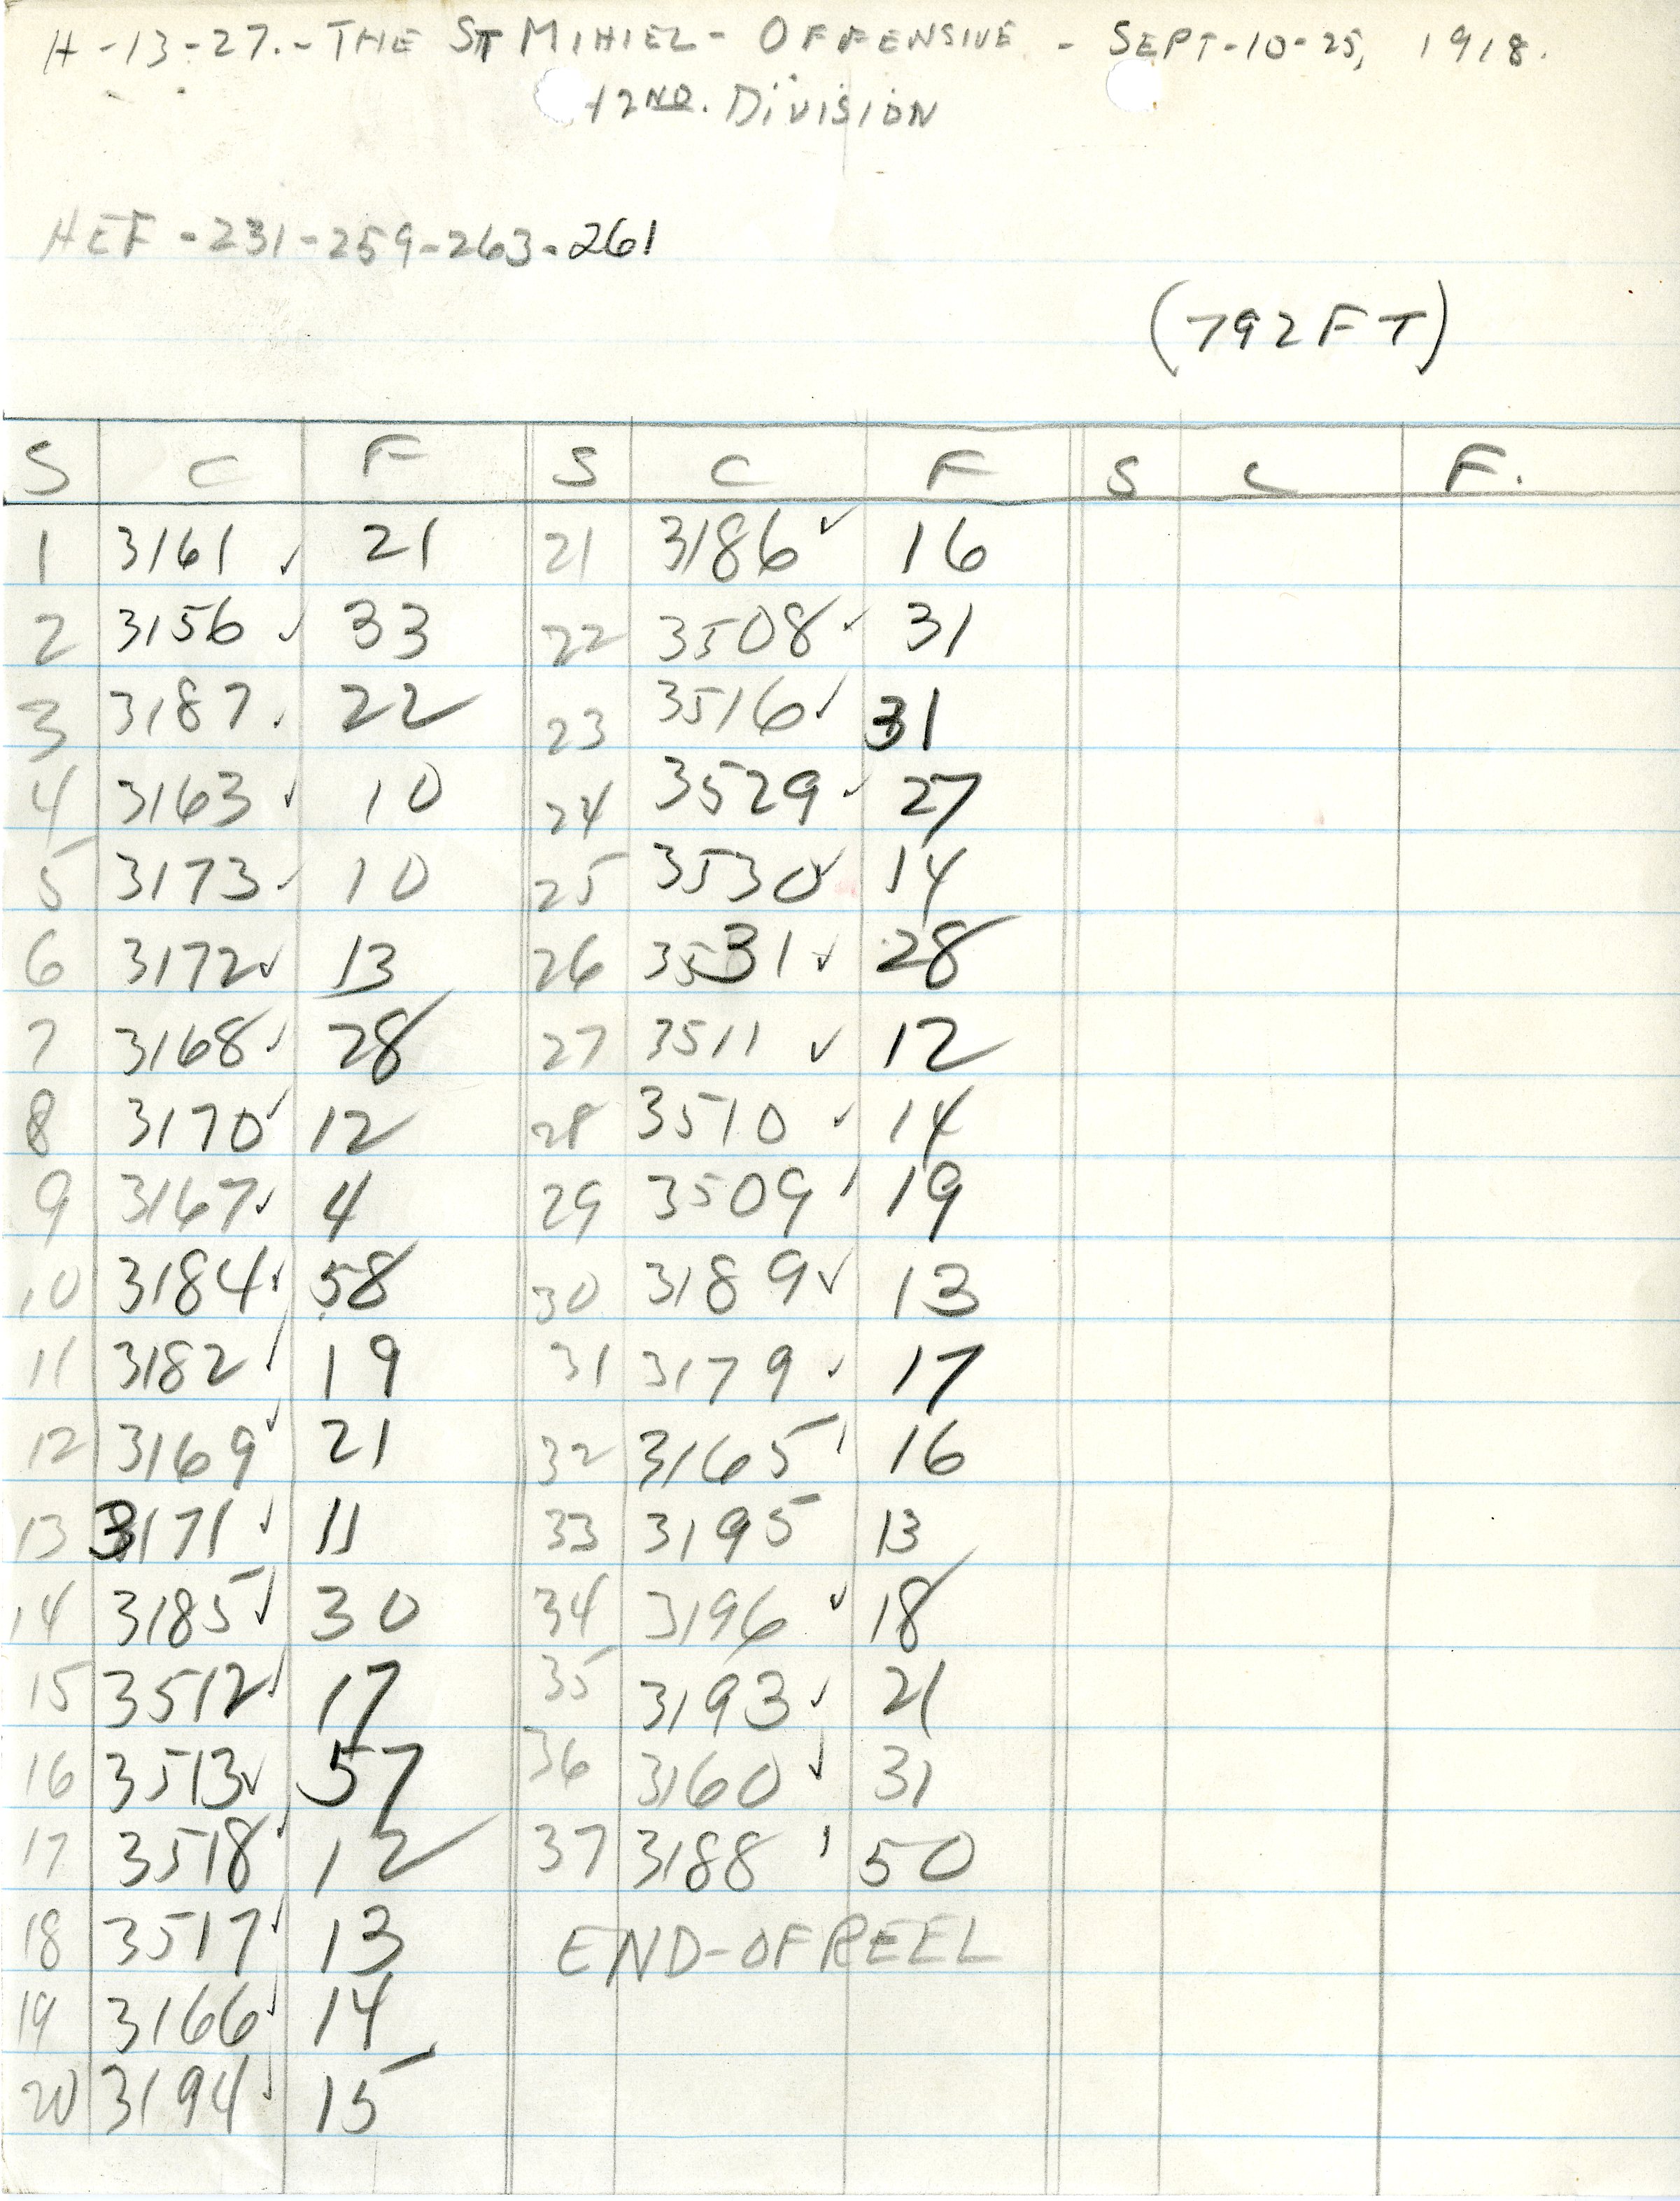 H-13-27.- THE ST MIHIEL- OFFENSIVE - SEPT-10-25, 1918.
42ND. DIVISION
HEF-231-259-263-261
(792FT)
S C F S C F S C F.
1 3161 ✓ 21 21 3186 ✓ 16
2 3156 ✓ 33 22 3508 ✓ 31
3 3187 ✓ 22 23 3516 ✓ 31
4 3163 ✓ 10 24 3529 ✓ 27
5 3173 ✓ 10 25 3530 ✓ 14
6 3172 ✓ 13 26 3531 ✓ 28
7 3168 ✓ 28 27 3511 ✓ 12
8 3170 ✓ 12 28 3510 ✓ 14
9 3167 ✓ 4 29 3509 ✓ 19
10 3184 ✓ 58 30 3189 ✓ 13
11 3182 ✓ 19 31 3179 ✓ 17
12 3169 ✓ 21 32 3165 ✓ 16
13 3171 ✓ 11 33 3195 13
14 3185 ✓ 30 34 3196 ✓ 18
15 3512 ✓ 17 35 3193 ✓ 21
16 3513 ✓ 57 36 3160 ✓ 31
17 3518 ✓ 12 37 3188 ✓ 50
18 3517 ✓ 13 END-OF REEL
19 3166 ✓ 14
20 3194 ✓ 15